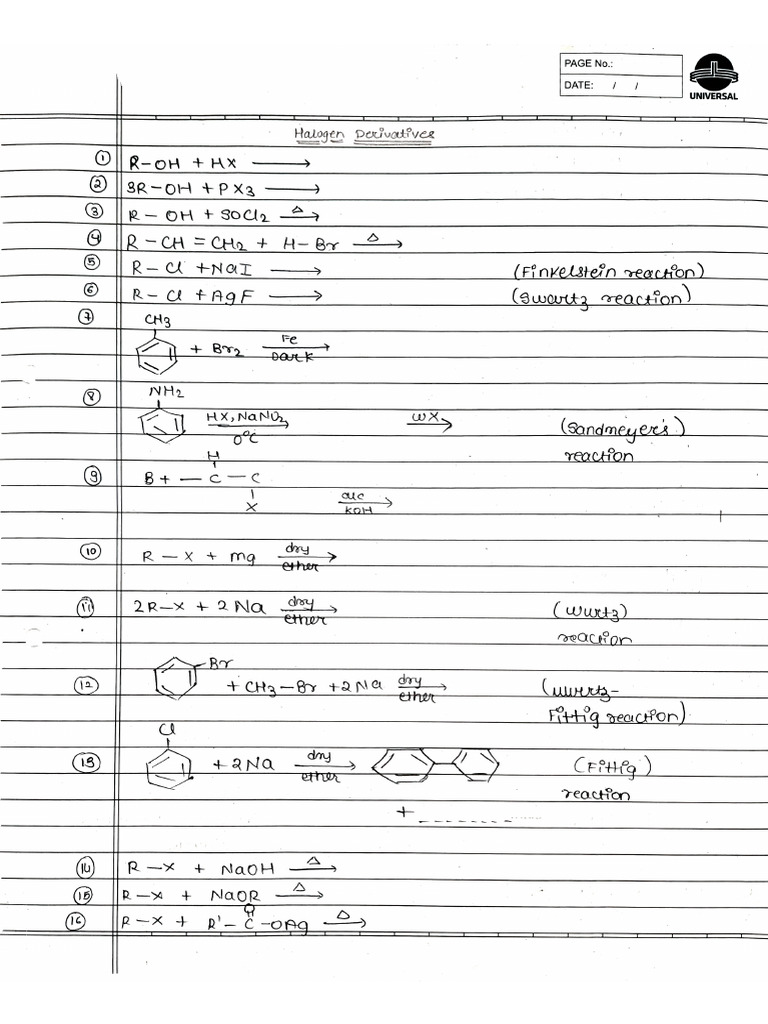 PAGE No.:
DATE: / /
UNIVERSAL
Halogen Derivatives
① R-OH + HX ⟶
② 3R-OH + PX3 ⟶
③ R-OH + SOCl2 —Δ→
④ R-CH=CH2 + H-Br —Δ→
⑤ R-Cl + NaI ⟶ (Finkelstein reaction)
⑥ R-Cl + AgF ⟶ (Swartz reaction)
⑦
CH3
+ Br2 Fe
Dark
⑧
NH2
HX, NaNO2
0°C
(Sandmeyer's)
reaction
H
⑨ B + - C - C
X
alc
KOH
⑩ R-X + mg dry
ether
⑪ 2R-X + 2Na dry
ether
(wurtz)
reaction
Br
⑫ + CH3-Br + 2Na dry
ether
(wurtz-
Fittig reaction)
Cl
⑬ + 2Na dry
ether
(Fittig)
reaction
+ _ _ _ _ _ _ _
⑭ R-X + NaOH —Δ→
⑮ R-X + NaOR —Δ→
O
⑯ R-X + R'-C-OAg —Δ→